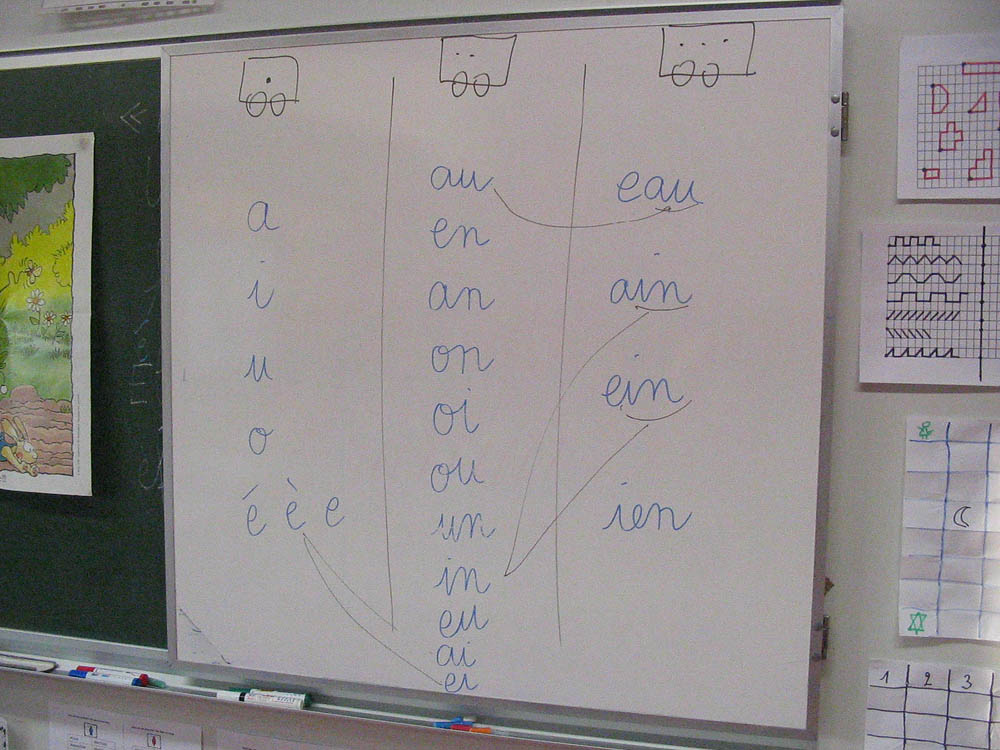 a
i
u
o
é è e
au
en
an
on
oi
ou
un
in
eu
ai
ei
eau
ain
ein
ien
1 2 3